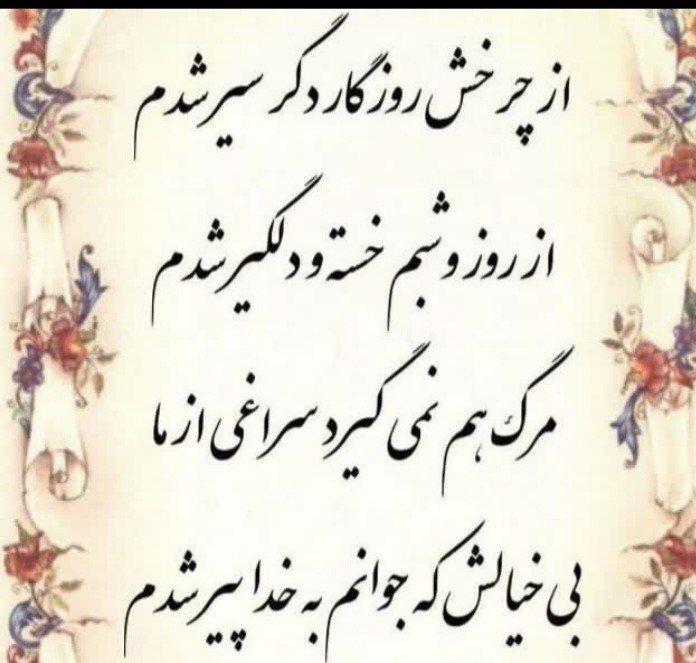 از چرخش روزگار دگر سیر شدم
از روز و شبم خسته و دلگیر شدم
مرگ هم نمی گیرد سراغی از ما
بی خیالش که جوانم به خدا پیر شدم